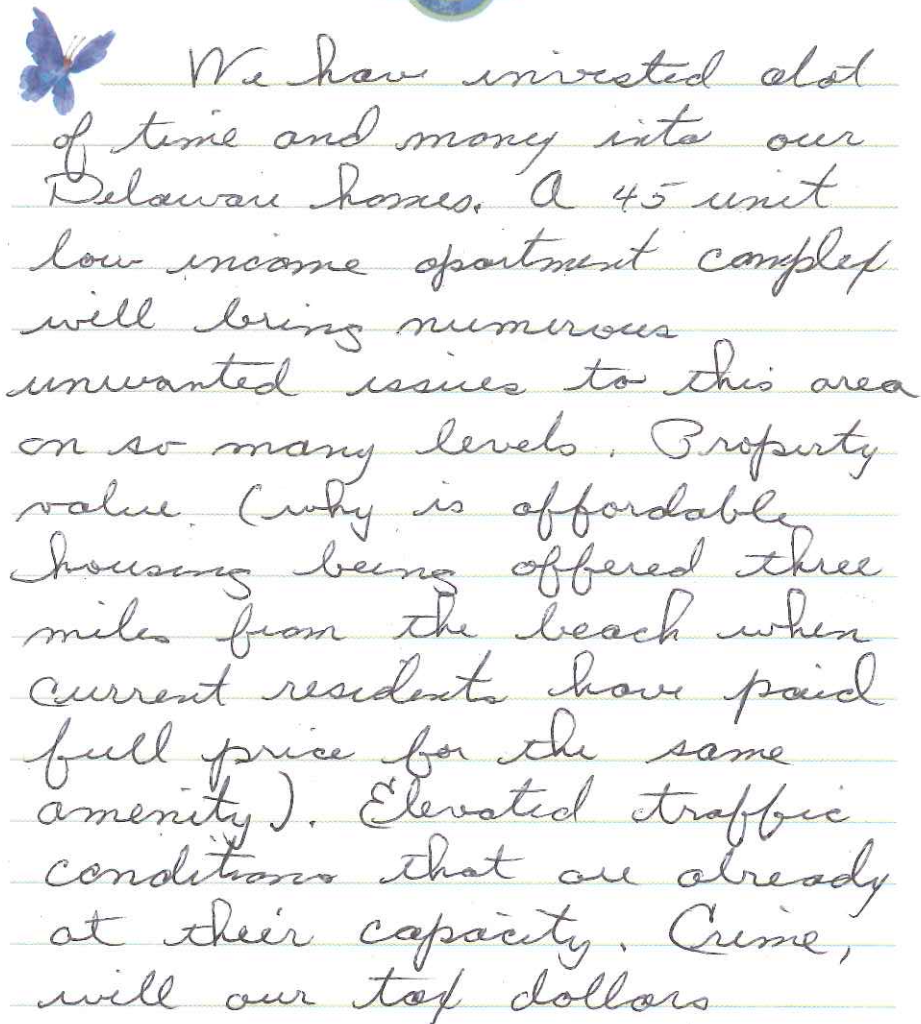 We have invested alot
of time and money into our
Delaware homes. A 45 unit
low income apartment complex
will bring numerous
unwanted issues to this area
on so many levels. Property
value (why is affordable
housing being offered three
miles from the beach when
current residents have paid
full price for the same
amenity). Elevated traffic
conditions that are already
at their capacity. Crime,
will our tax dollars